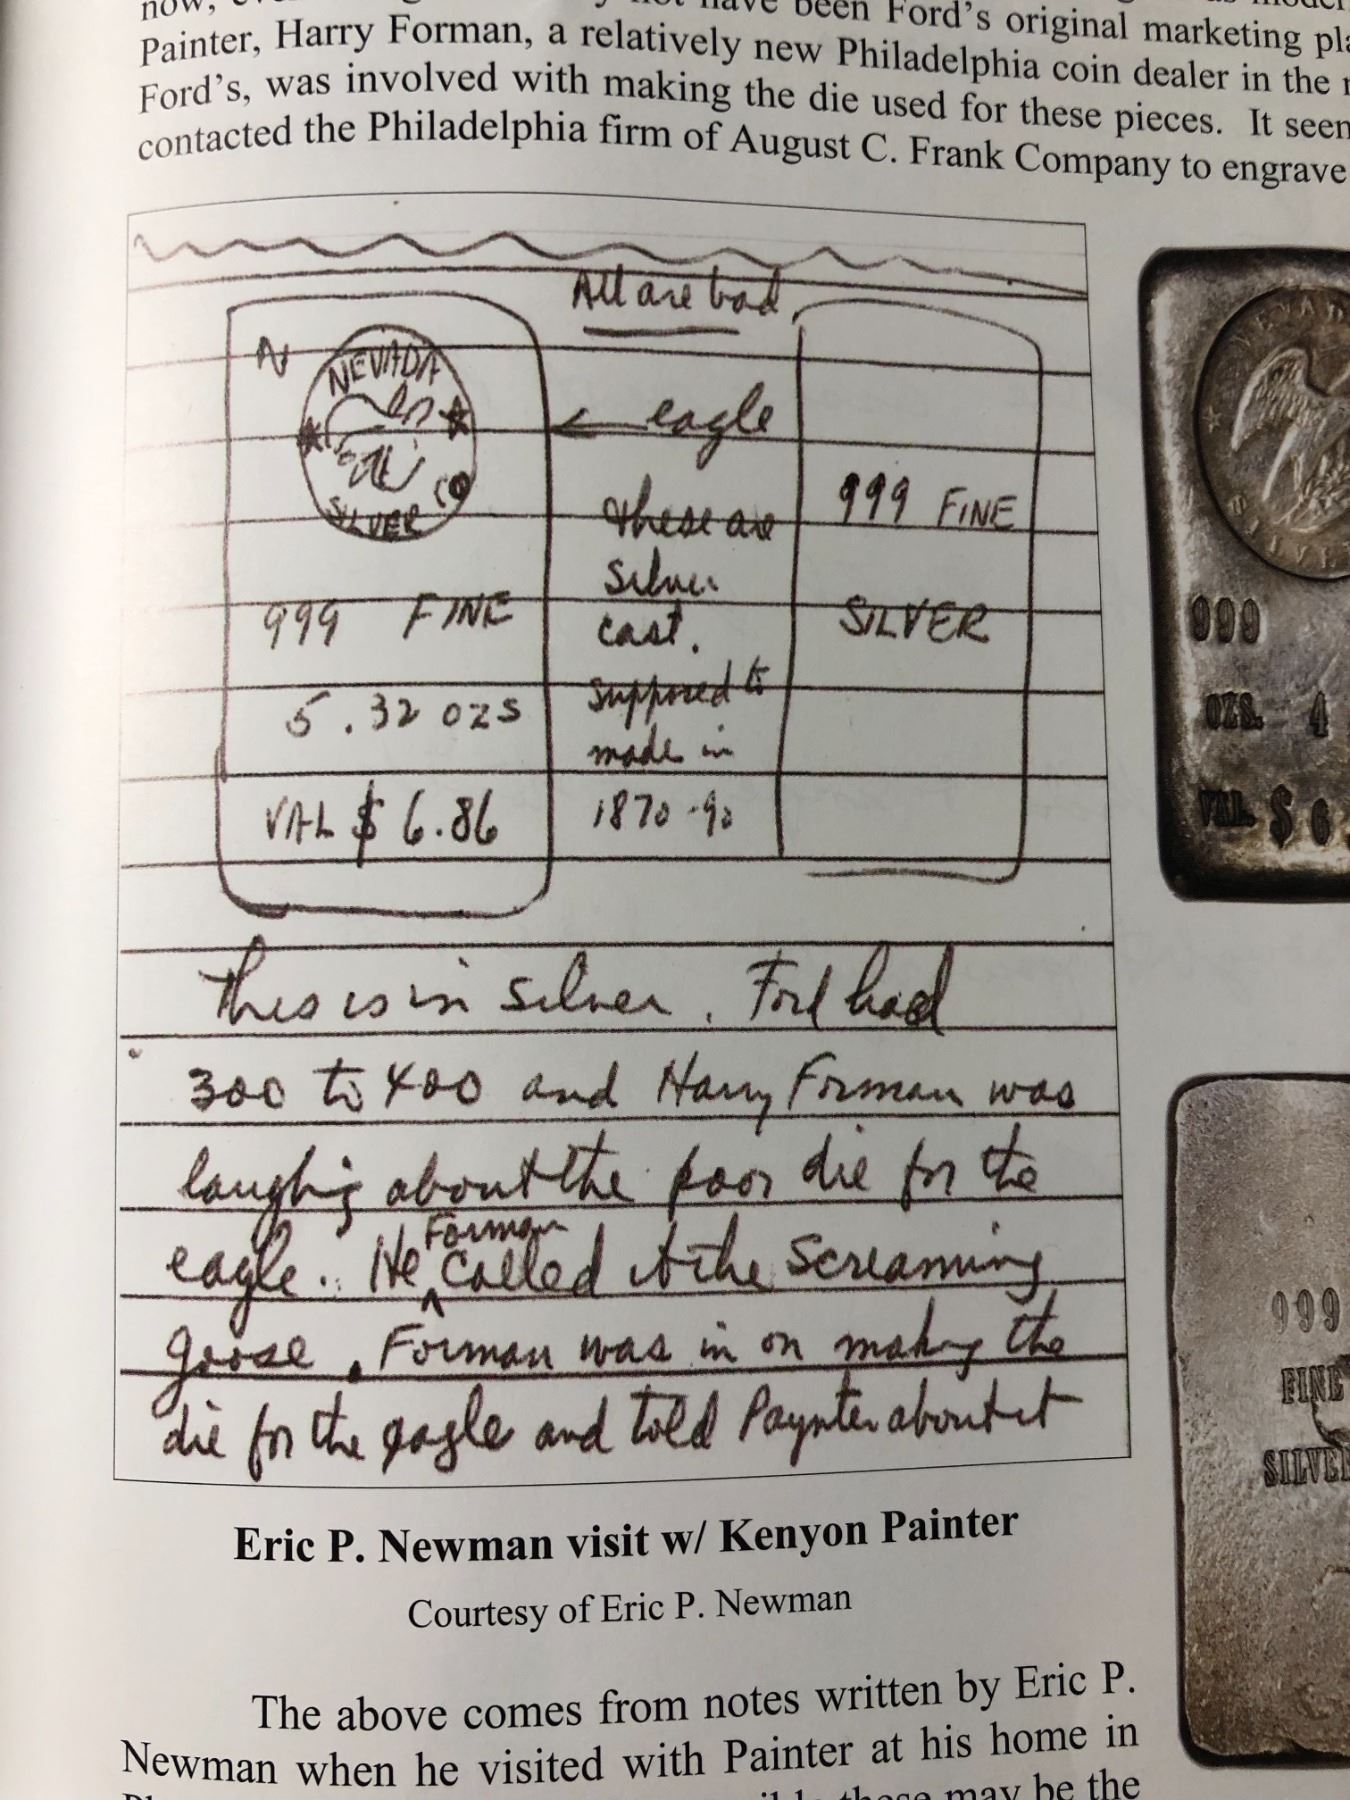 have been Ford's original marketing
Painter, Harry Forman, a relatively new Philadelphia coin dealer in the
Ford's, was involved with making the die used for these pieces. It
contacted the Philadelphia firm of August C. Frank Company to engrave
All are bad
N
NEVADA
SILVER CO
eagle
999 FINE
5.32 OZS
VAL $ 6.86
these are
silver
cast.
supposed to
made in
1870-90
999 FINE
SILVER
This is in silver. Ford had
300 to 400 and Harry Forman was
laughing about the poor die for the
eagle. He ^ Forman called it the screaming
goose. Forman was in on making the
die for the eagle and told Paynter about it
999
OZS. 4
VAL. $ 6.
999
FINE
SILVER
Eric P. Newman visit w/ Kenyon Painter
Courtesy of Eric P. Newman
The above comes from notes written by Eric P.
Newman when he visited with Painter at his home in
these may be the